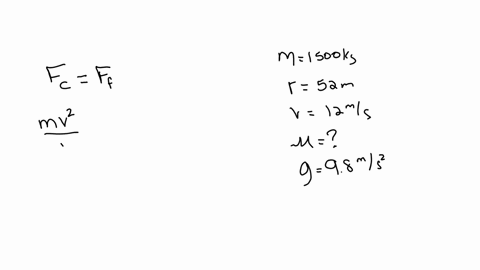 F_c = F_f
mv²
m=1500kg
r = 52m
v = 12 m/s
μ = ?
g = 9.8 m/s²